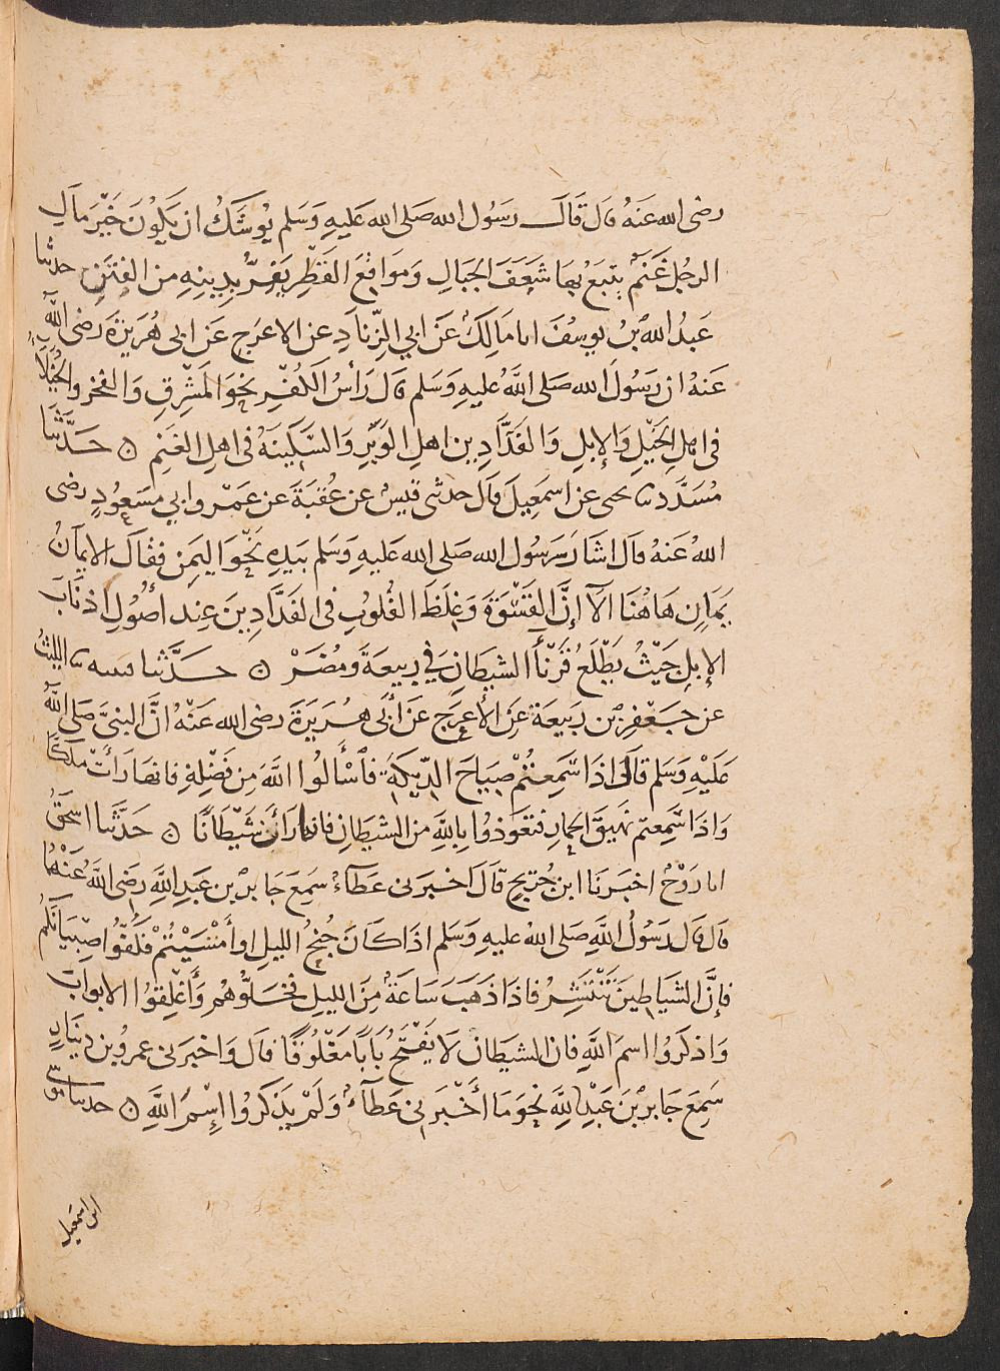 رضى الله عَنهُ قال قَالَ رسَوُل الله صَلى الله عَليهِ وَسَلم يُوشَكُ ان يَكُونَ خَيْرَ مَالِ
الرجُل غَنَمٌ يتبَعُ بهَا شَعَفَ الجبَالِ وَموَاقعَ القَطرِ يَفِرُّ بدِينِهِ من الفِتَنِ حدثنا
عَبدُ الله بنُ يوسُفَ انا مَالِكٌ عَنَ ابي الزّنادِ عن الاعرَج عَن ابى هُرَيرَةَ رضى اللهُ
عَنهُ ان رَسُولَ الله صَلى اللَّهُ عليهِ وَسَلم قال رَأسُ الكُفْرِ نحْوَ المَشْرِقِ وَالفخر والخُيَلاَءُ
فى اهلِ الخَيْلِ وَالإبلِ وَالفَدَّادِين اهلِ الوَبَرِ وَالسَّكينَةُ فى اهلِ الغَنَمِ ن حَدَّثنَا
مُسَدَّد ثنا يحى عن اسمَعِيلَ قال حدثنى قيسٌ عن عُقبَةَ عن عَمْرو ابي مسَعُودٍ رضى
اللهُ عَنهُ قال اشَارَ رَسُول الله صَلى الله عَليهِ وَسَلم بيَدِهِ نَحْوَ اليَمن فقَالَ الايمَانُ
يَمَانِ هَاهُنَا الَا إنَّ القَسْوَةَ وَغِلَظَ القُلوُبِ فى الفَدَّادِينَ عِند أصُولِ اذنَابَ
الإبل حَيْثُ يَطْلَعُ قَرْنَا الشيطَانِ في ربيعَةَ ومُضَرْ ن حَدَّثنا قتيبه ثنا الليثُ
عن جَعْفرِ بن رَبيعَةَ عَنَ الأعرَج عَن أبى هُرَيرَةَ رضى الله عَنْهُ انَّ النبىَّ صَلى اللهُ
عَلَيْهِ وَسَلم قَالَ اذَا سَمِعتُمْ صِيَاحَ الدّيكَةِ فَاسْألوُا اللَّهَ مِن فَضْلِهِ فانهَا رَأتْ مَلَكًا
وَاذَا سَمِعتم نَهِيقَ الحمَارِ فتعَوذوُا باللَّهِ من الشيطَانِ فانها رَأتْ شَيْطَانًا ن حَدَّثنا اسحَقُ
انا رَوْحٌ اخبَرَنَا ابن جُرَيجٍ قالَ اخبرَنى عَطآءٌ سَمِعَ جَابرَ بن عَبدِ اللَّهِ رضَى اللَّهُ عَنْهُمَا
قال قال رَسُولُ اللَّهِ صَلى اللهُ عليهِ وَسَلم اذَا كَانَ جُنحُ الليلِ او أمْسَيْتُمْ فكُفّوُا صِبْيَانَكُم
فإنَّ الشَيَاطِينَ تَنْتَشِرُ فاذَا ذهَبَ سَاعَةٌ مِنَ الليلِ فخَلُّوهُم وَأَغْلِقوُا الابوابَ
وَاذكرُوا اسمَ اللَّهِ فان الشيطَانَ لاَ يَفْتَحُ بَابًا مُغْلَقًا قالَ وَاخبرَنى عمرُو بن دينَارٍ
سَمِعَ جَابرَ بْنَ عَبْدِ للَّهِ نحْوَ مَا أَخْبَرَنى عَطآءٌ وَلَمْ يذكرُوا إسْمَ اللَّهِ ن حدثنا موسى
ابن اسمعيل